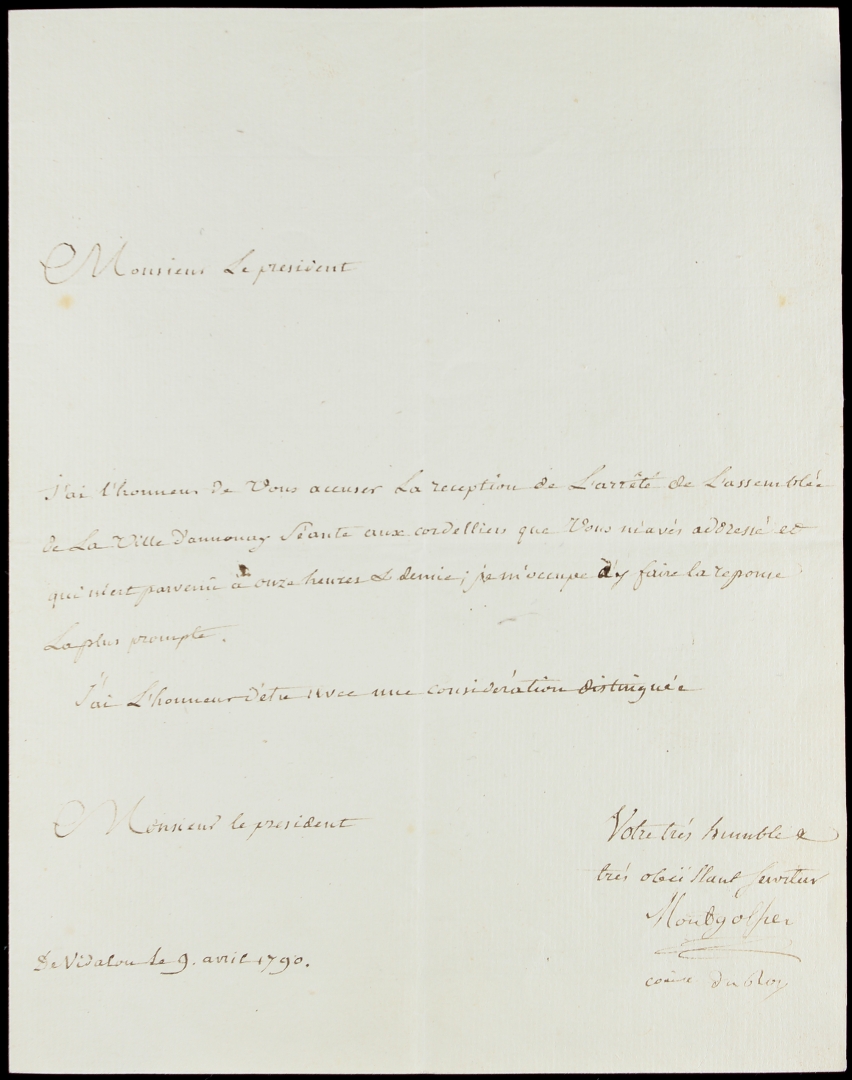 Monsieur Le president
J'ai l'honneur de Vous accuser La reception de L'arrêté de L'assemblée
de La Ville d'annonay Séante aux cordelliers que Vous m'avés adressé et
qui m'est parvenu à onze heures & demie; je m'occupe d'y faire la reponse
La plus prompte.
J'ai L'honneur d'être avec une considération distinguée
Monsieur le president
Votre trés humble &
trés obéissant serviteur
Montgolfier
De Vidalon le 9. avril 1790.
du Roy